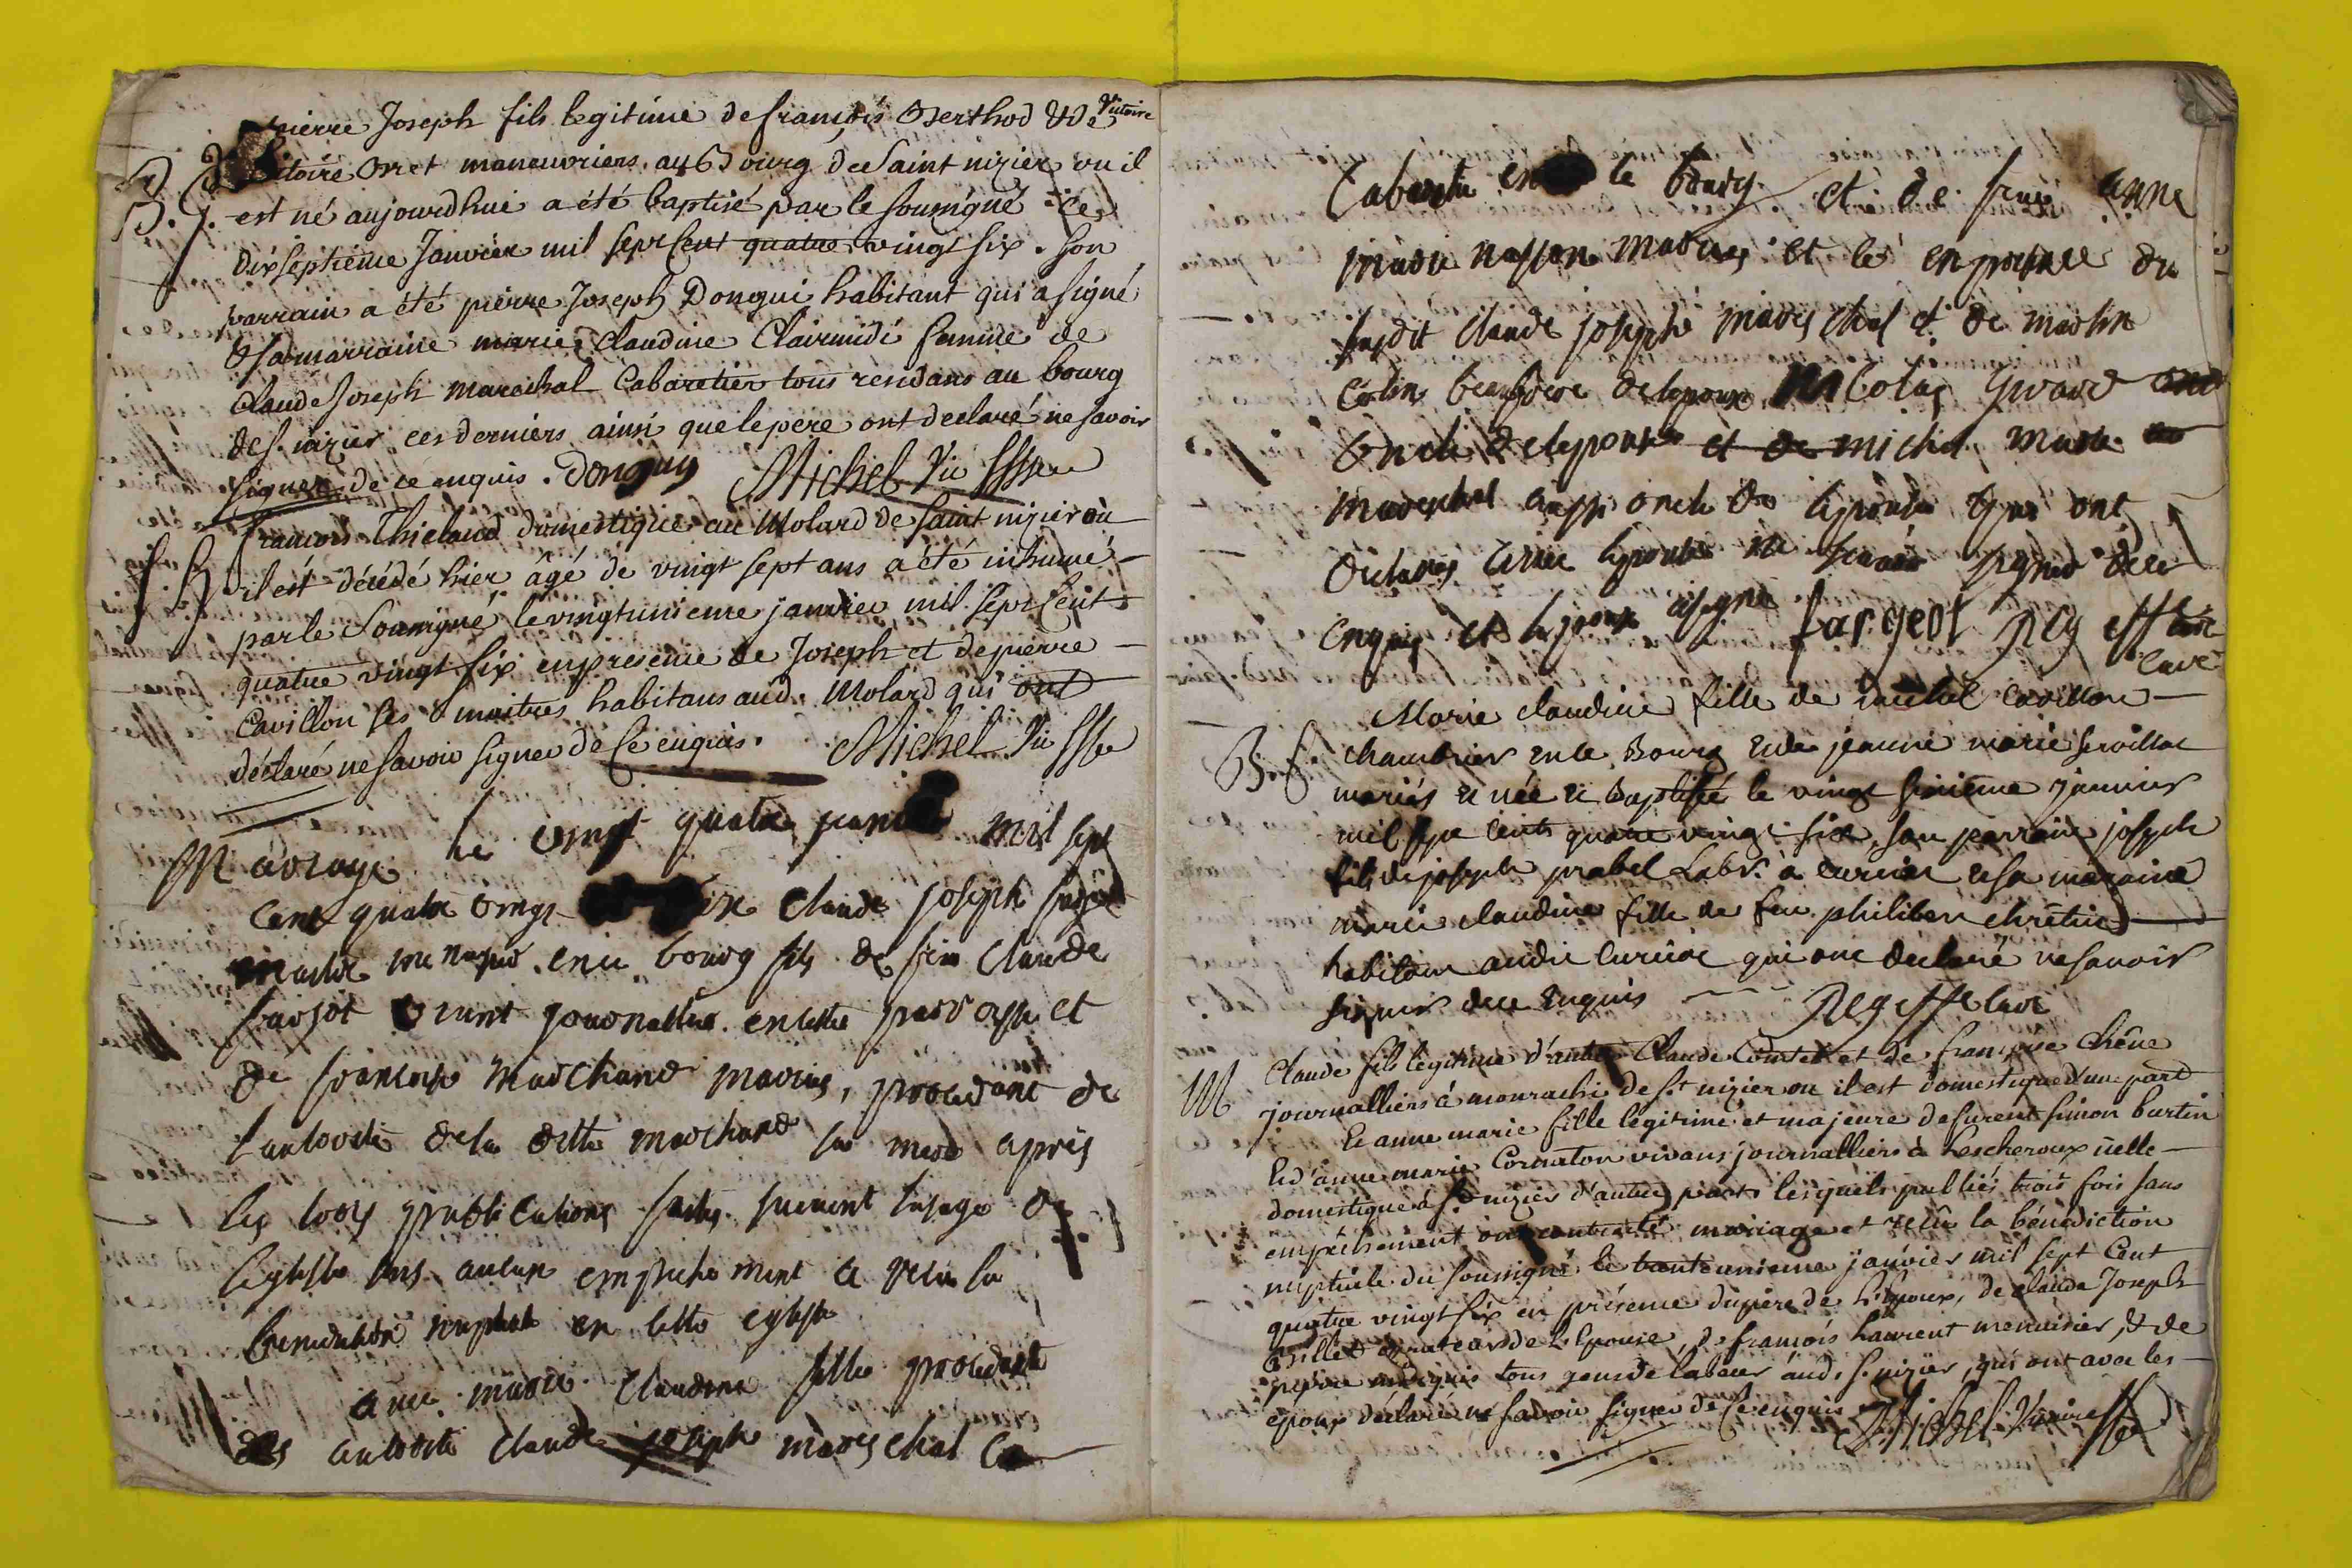 pierre Joseph fils legitime de françois Berthod & de Victoire
Victoire oret manouvriers au Bourg de Saint nizier ou il
B. G. est né aujourdhui a été baptisé par le soussigné ce
dix septieme Janvier mil sept Cent quatre vingt six . son
parrain a été pierre Joseph Donguis habitant qui a signé
& sa marraine marie Claudine Clairmidi femme de
Claude Joseph marechal Cabaretier tous residans au bourg
de S. nizier ces derniers ainsi que le pere ont declaré ne savoir
signer de ce enquis . Donguis Michel Vic
françois Thielaud domestique au Molard de Saint nizier où
il est décédé hier âgé de vingt sept ans a été inhumé
par le Soussigné, le vingtunieme janvier mil Sept Cent
quatre vingt six en presence de Joseph et de pierre
Cavillon ses maitres habitans aud. Molard qui ont
déclaré ne Savoir Signer de Ce enquis. Michel Vic
Mariage Le vingt quatre janvier mil sept
Cent quatre vingt six Claude joseph fargeot
en ce bourg fils de feu Claude
fargeot vivant journallier en cette paroisse et
de françoise Marchand mariés, procedant de
l'autorité de la ditte marchand sa mere après
les trois publications faites suivant l'usage de
l'eglise sans aucun empechement a reçu la
benediction nuptiale en cette eglise
avec marie Claudine fille procedante
des autorité Claude joseph mareschal Ca
Cabaretier en le bourg et de feue anne
marie mariés et ce en presence du
susdit Claude joseph mareschal et de
Colin beaufrere de lepoux nicolas Girard
oncle de lepouse et de michel
mareschal aussi oncle de lepouse qui ont
declarés avec lepouse ne scavoir signer de ce
enquis et lepoux a signé fargeot
curé
Marie claudine fille de michel cavillon
B. f. chambrier en le Bourg et de jeanne marie
mariés et née et Baptisée le vingt sixième janvier
mil sept cent quatre vingt six, son parrain joseph
fils de joseph prabel Labr. à curciat et sa maraine
marie claudine fille de feu philibert chrétien
habitans audit curciat qui ont declaré ne savoir
signer de ce enquis curé
M Claude fils legitime d'autre Claude Coustet et de françoise Chêne
journalliers à monrachi de St nizier ou il est domestique d'une part
Et anne marie fille legitime et majeure de furent simon burtin
Et d'anne marie Cornaton vivans journalliers à Lescheroux
domestique à St. nizier d'autre part lesquels publiés trois fois sans
empêchement ont contracté mariage et reçu la bénédiction
nuptiale du soussigné le trente unieme janvier mil sept Cent
quatre vingt six en présence du père de l'Epoux, de claude Joseph
Billet curateur de l'Epouse, de françois Laurent menuisier, & de
pierre tous gens de labeur aud. S. nizier, qui ont avec les
epoux déclaré ne savoir signer de Ce enquis Michel Vicaire